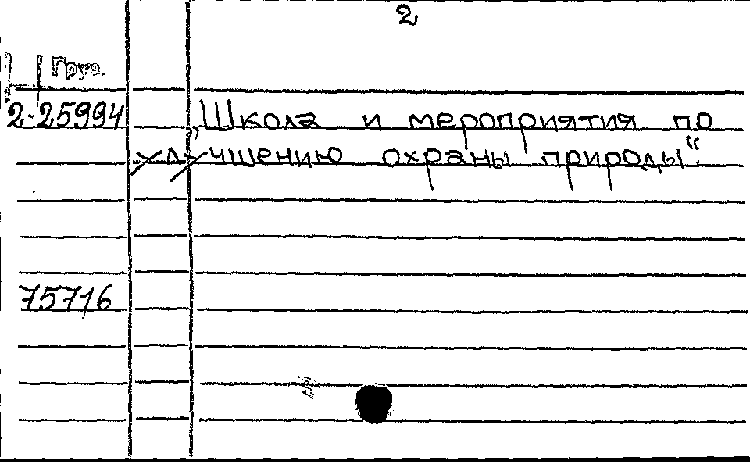 2
Груз.
2-25994 „Школа и мероприятия по
улучшению охраны природы“
75716